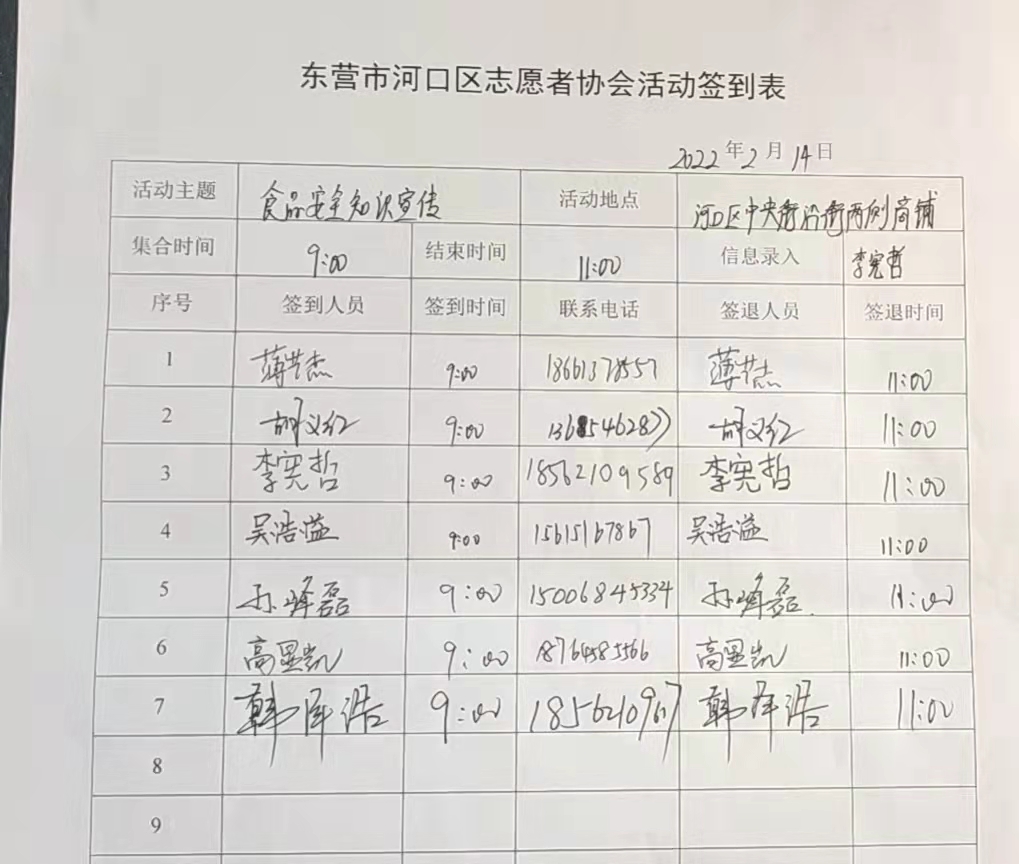 东营市河口区志愿者协会活动签到表
2022年2月14日
活动主题 食品安全知识宣传 活动地点 河口区中央街沿街两侧商铺
集合时间 9:00 结束时间 11:00 信息录入 李宪哲
序号 签到人员 签到时间 联系电话 签退人员 签退时间
1 薄其杰 9:00 18661378557 薄其杰 11:00
2 胡义红 9:00 胡义红 11:00
3 李宪哲 9:00 18562109589 李宪哲 11:00
4 吴浩溢 9:00 15615167867 吴浩溢 11:00
5 孙峰磊 9:00 15006845334 孙峰磊 11:00
6 高显凯 9:00 18764585566 高显凯 11:00
7 韩泽浩 9:00 韩泽浩 11:00
8
9